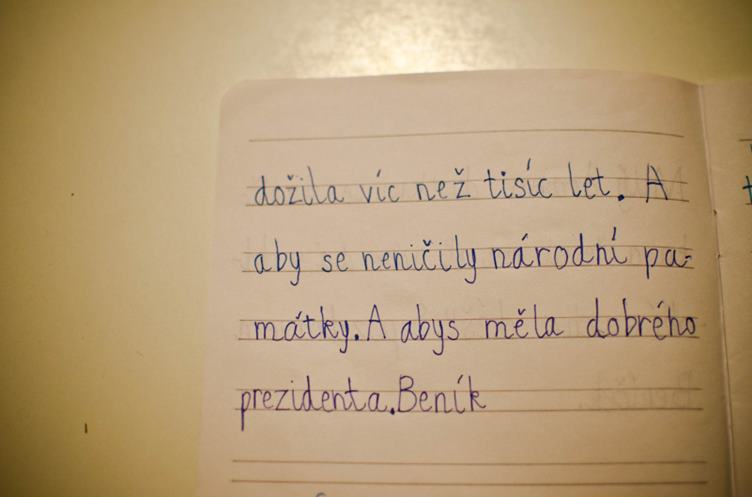 dožila víc než tisíc let. A
aby se neničily národní pa-
mátky. A abys měla dobrého
prezidenta. Beník